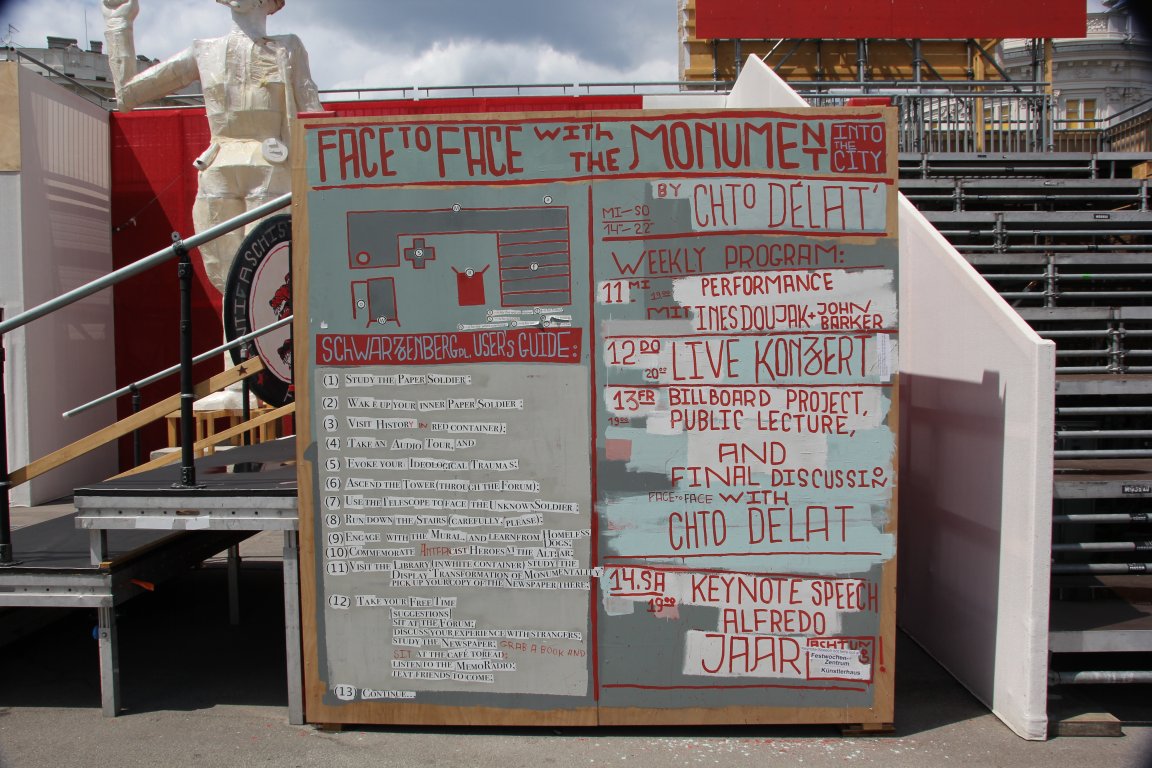 FACE TO FACE WITH THE MONUMENT
INTO THE CITY
BY CHTO DÉLAT'
MI–SO
14–22
WEEKLY PROGRAM:
11 MI 19 PERFORMANCE
MIT INES DOUJAK + JOHN BARKER
12 DO 20 LIVE KONZERT
13 FR 19 BILLBOARD PROJECT,
PUBLIC LECTURE,
AND
FINAL DISCUSSIN
FACE TO FACE WITH
CHTO DELAT
14. SA 19 KEYNOTE SPEECH
ALFREDO
JAAR ACHTUNG!
Festwochen-
Zentrum
Künstlerhaus
SCHWARZENBERGPL. USER'S GUIDE:
(1) STUDY THE PAPER SOLDIER;
(2) WAKE UP YOUR INNER PAPER SOLDIER;
(3) VISIT HISTORY IN RED CONTAINER);
(4) TAKE AN AUDIO TOUR, AND
(5) EVOKE YOUR IDEOLOGICAL TRAUMAS;
(6) ASCEND THE TOWER (THROUGH THE FORUM);
(7) USE THE TELESCOPE TO FACE THE UNKNOWN SOLDIER.
(8) RUN DOWN THE STAIRS (CAREFULLY, PLEASE);
(9) ENGAGE WITH THE MURAL, AND LEARN FROM HOMELESS DOGS;
(10) COMMEMORATE ANTIFACIST HEROES AT THE ALTAR;
(11) VISIT THE LIBRARY (IN WHITE CONTAINER) STUDY THE
DISPLAY TRANSFORMATION OF MONUMENTALITY
PICK UP YOUR COPY OF THE NEWSPAPER THERE;
(12) TAKE YOUR FREE TIME
[SUGGESTIONS]
SIT AT THE FORUM;
DISCUSS YOUR EXPERIENCE WITH STRANGERS,
STUDY THE NEWSPAPER, GRAB A BOOK AND
SIT AT THE CAFÉ TO READ;
LISTEN TO THE MEMORADIO;
TEXT FRIENDS TO COME;
(13) CONTINUE...